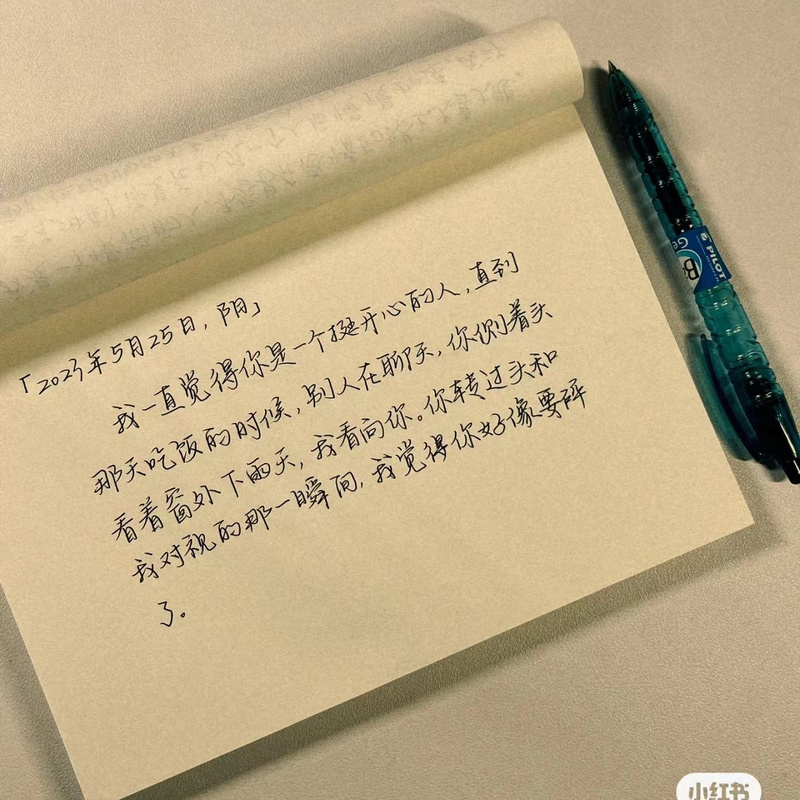 「2023年5月25日，阳」
我一直觉得你是一个挺开心的人，直到
那天吃饭的时候，别人在聊天，你侧着头
看着窗外下雨天，我看向你。你转过头和
我对视的那一瞬间，我觉得你好像要碎
了。
PILOT
小红书